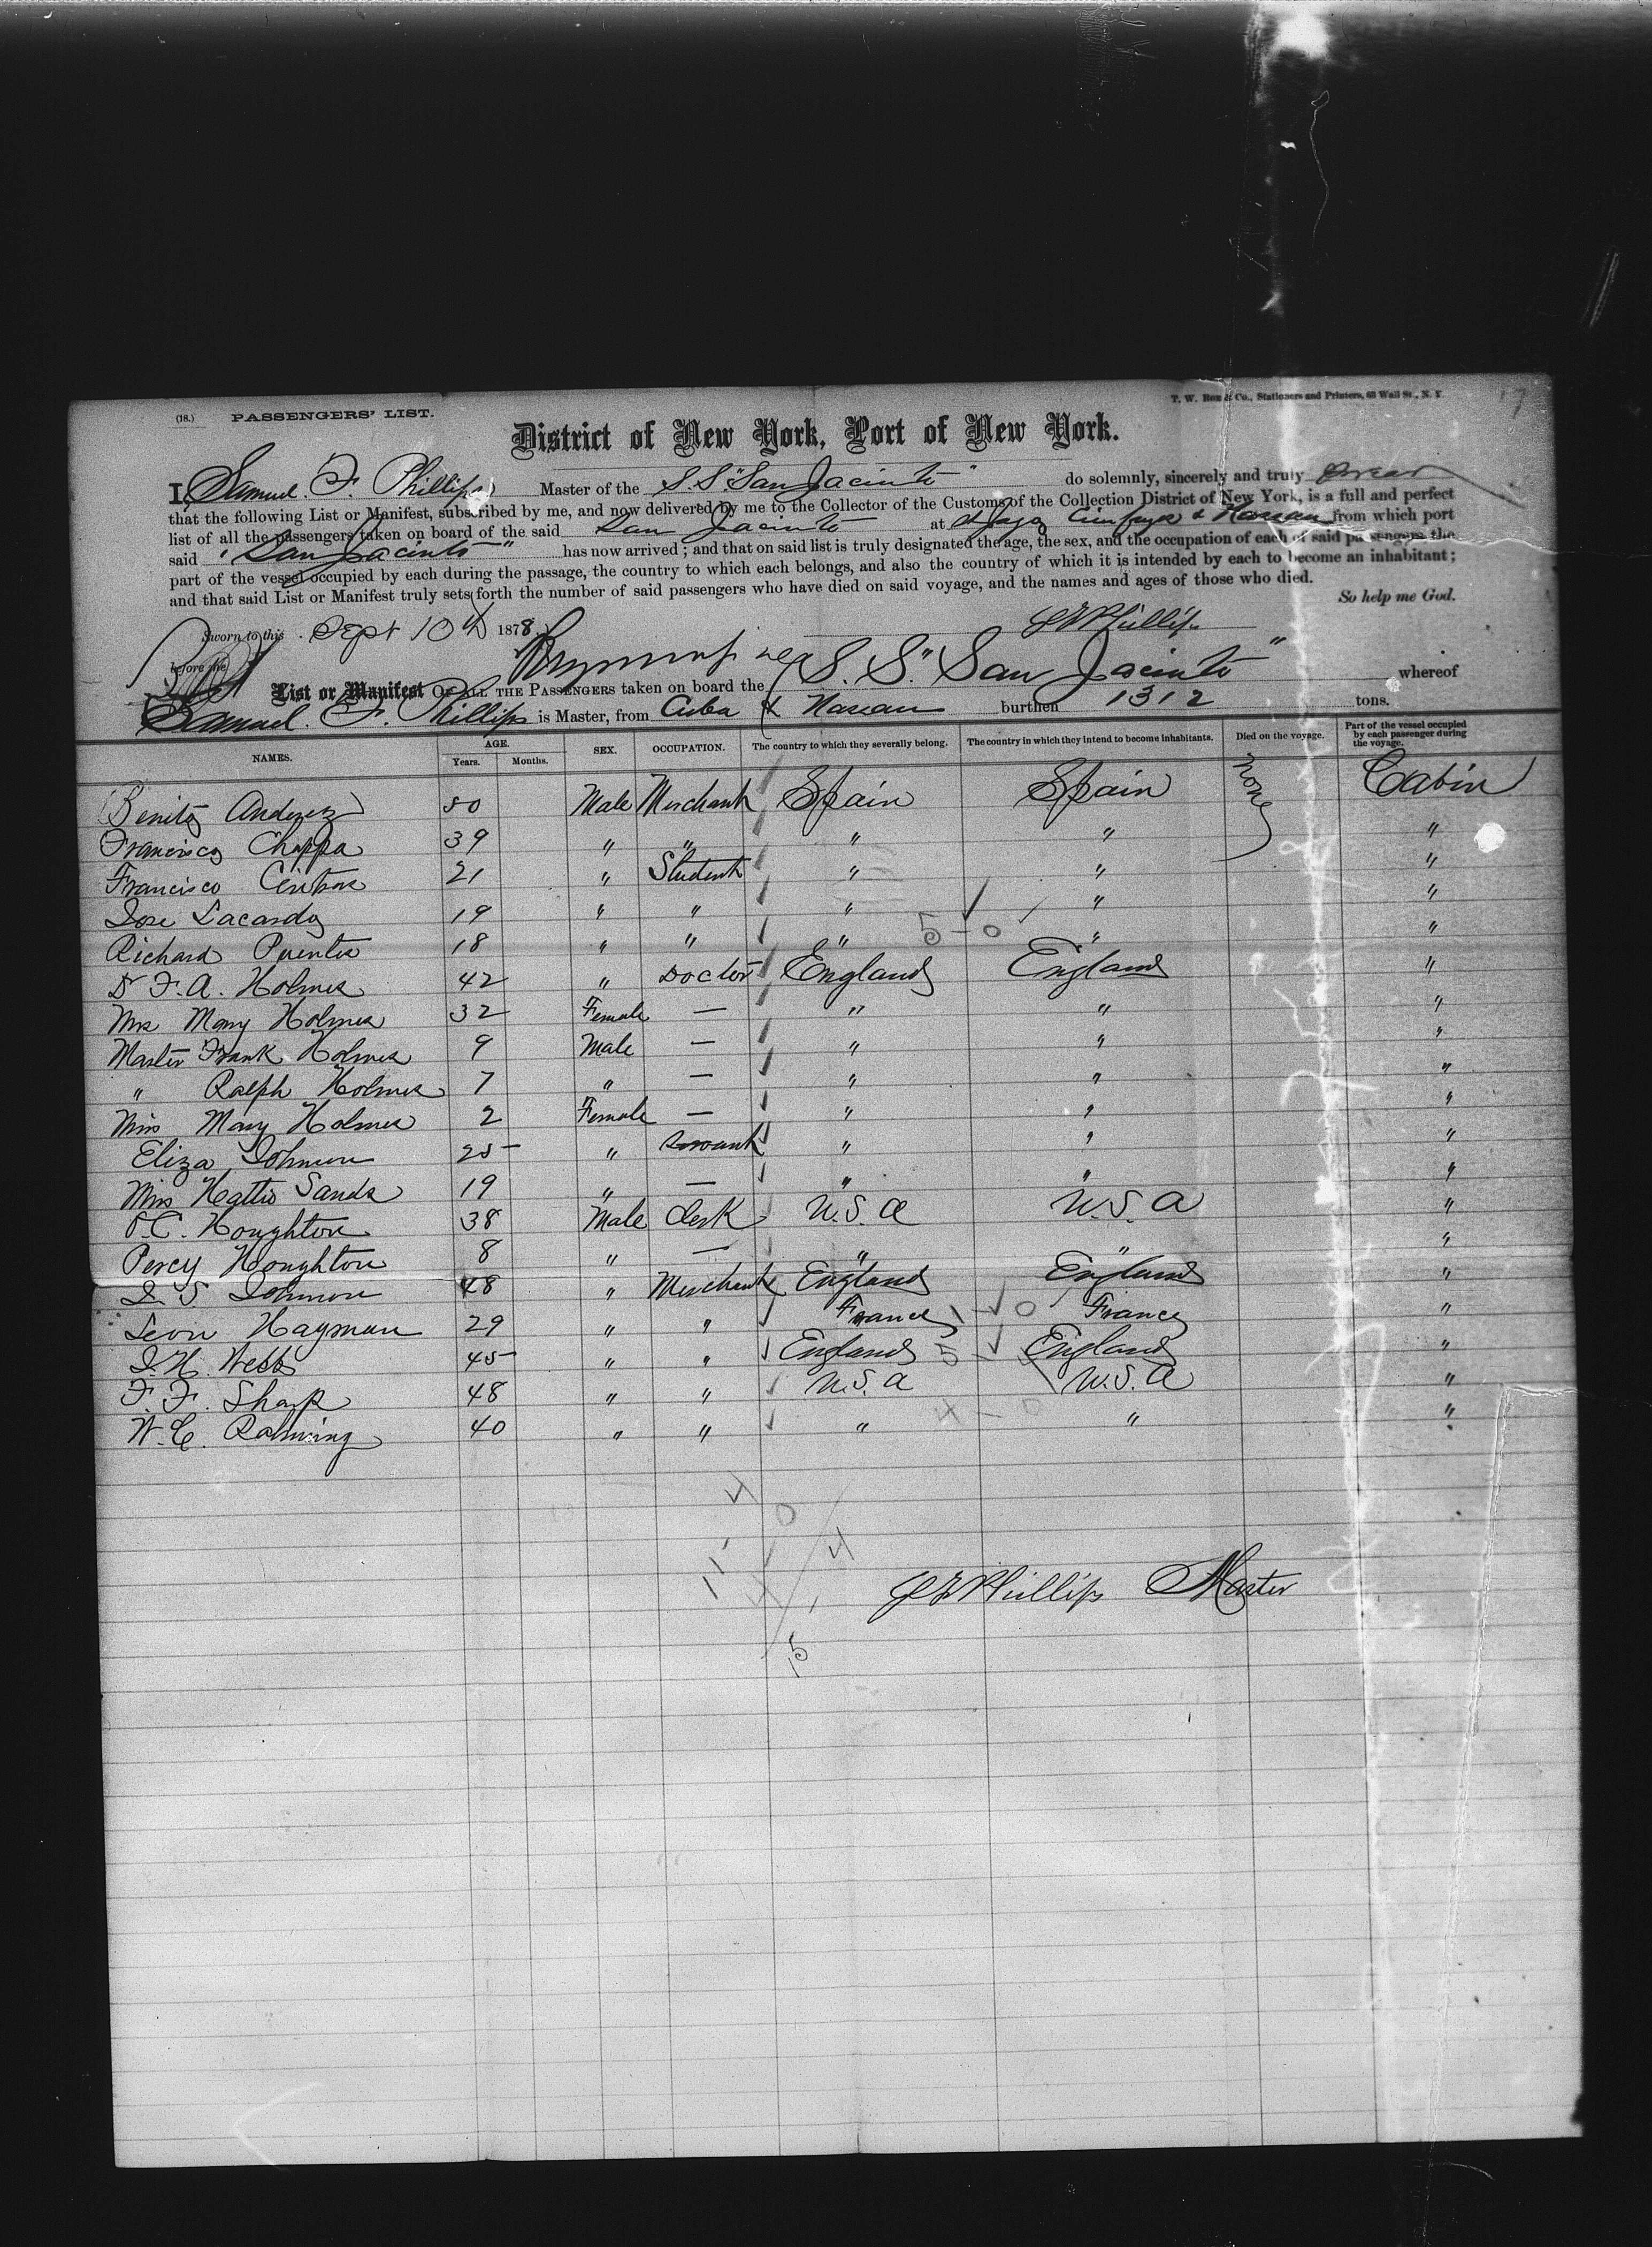 (18.) PASSENGERS' LIST.
T. W. & Co., Stationers and Printers, 68 Wall St., N. Y.
District of New York, Port of New York.
I, Samuel. F. Phillips Master of the S.S. "San Jacinto" do solemnly, sincerely and truly swear
that the following List or Manifest, subscribed by me, and now delivered by me to the Collector of the Customs of the Collection District of New York, is a full and perfect
list of all the passengers taken on board of the said San Jacinto at St Jago & Nassau from which port
said "San Jacinto" has now arrived; and that on said list is truly designated the age, the sex, and the occupation of each of said passengers the
part of the vessel occupied by each during the passage, the country to which each belongs, and also the country of which it is intended by each to become an inhabitant;
and that said List or Manifest truly sets forth the number of said passengers who have died on said voyage, and the names and ages of those who died.
So help me God.
Sworn to this Sept 10th 1878 S F Phillips
before me
List or Manifest OF ALL THE PASSENGERS taken on board the S. S. "San Jacinto" whereof
Samuel. F. Phillips is Master, from Cuba & Nassau burthen 1312 tons.
NAMES. AGE. Years. Months. SEX. OCCUPATION. The country to which they severally belong. The country in which they intend to become inhabitants. Died on the voyage. Part of the vessel occupied by each passenger during the voyage.
Benito 50 Male Merchant Spain Spain none Cabin
Francisco Chappa 39 " " " " "
Francisco 21 " Student " " "
Jose Lacardo 19 " " " " "
Richard Puentes 18 " " " " "
Dr F. A. Holmes 42 " Doctor England England "
Mrs Mary Holmes 32 Female — " " "
Master Frank Holmes 9 Male — " " "
" Ralph Holmes 7 " — " " "
Miss Mary Holmes 2 Female — " " "
Eliza Johnson 25 " Servant " " "
Miss Hattie Sands 19 " — " " "
C. Houghton 38 Male Clerk U.S.A U.S.A "
Percy Houghton 8 " — " " "
S. Johnson 48 " Merchant England England "
Leon Hayman 29 " " France France "
J. H. Webb 45 " " England England "
F. F. Sharp 48 " " U.S.A U.S.A "
W. C. 40 " " " " "
S F Phillips Master